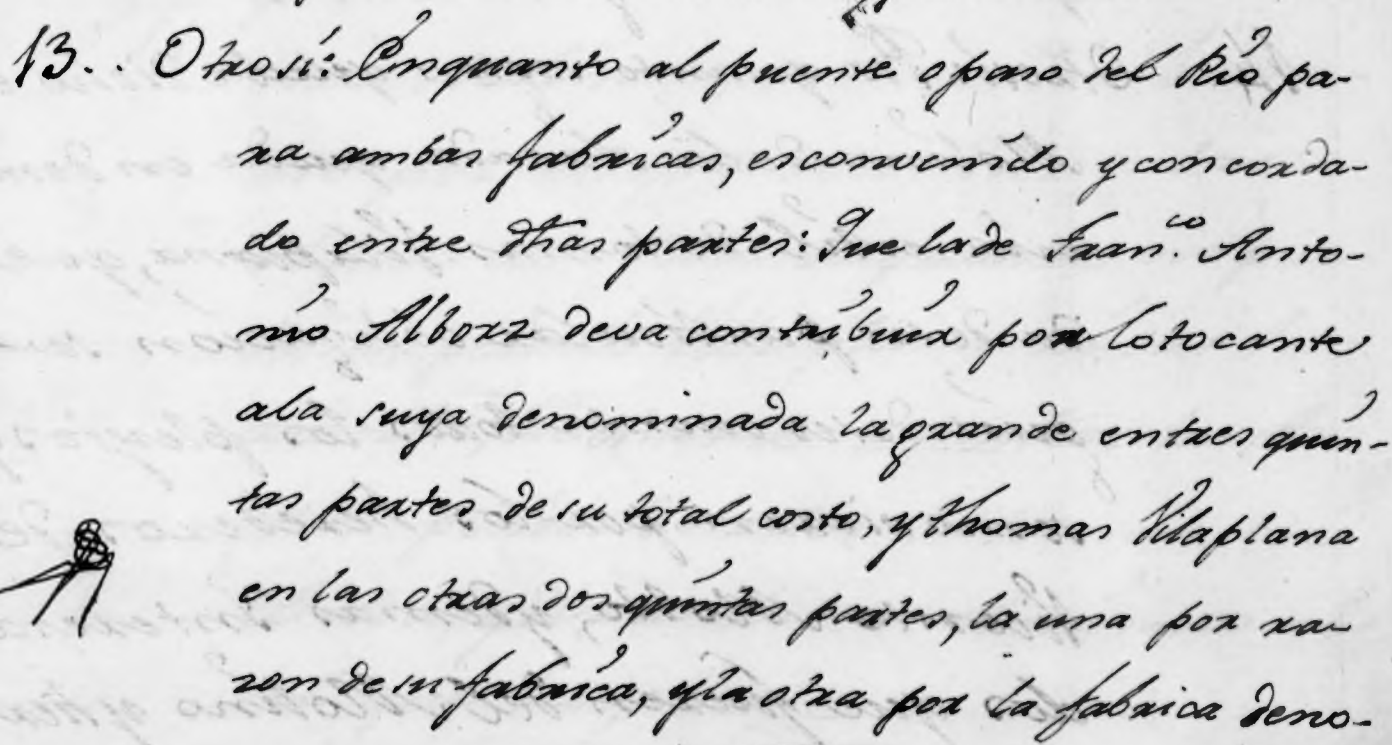 13.. Otrosi: Enquanto al puente o paso del Rio pa-
ra ambas fabricas, es convenido y concorda-
do entre dhas partes: Que la de Fran.co Anto-
nio Alborz deva contribuir por lo tocante
ala suya denominada la grande en tres quin-
tas partes de su total costo, y thomas Vilaplana
en las otras dos quintas partes, la una por ra-
zon de su fabrica, y la otra por la fabrica deno-